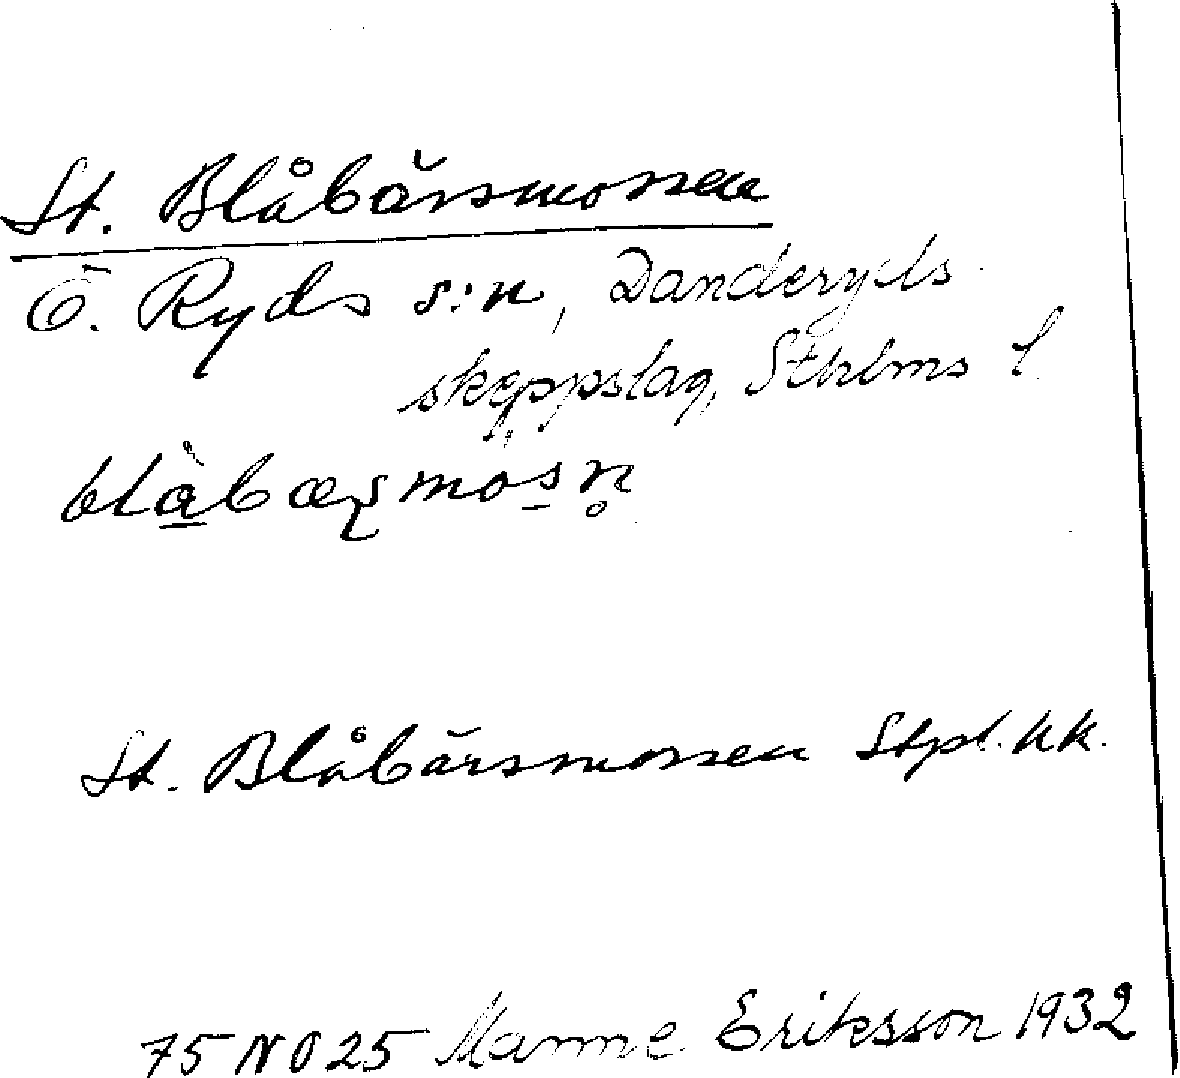 St. Blåbärsmossen
Ö. Ryds s:n, Danderyds
skeppslag, Sthlms l
St. Blåbärsmossen Stpl. kk.
75 NO 25 Manne Eriksson 1932